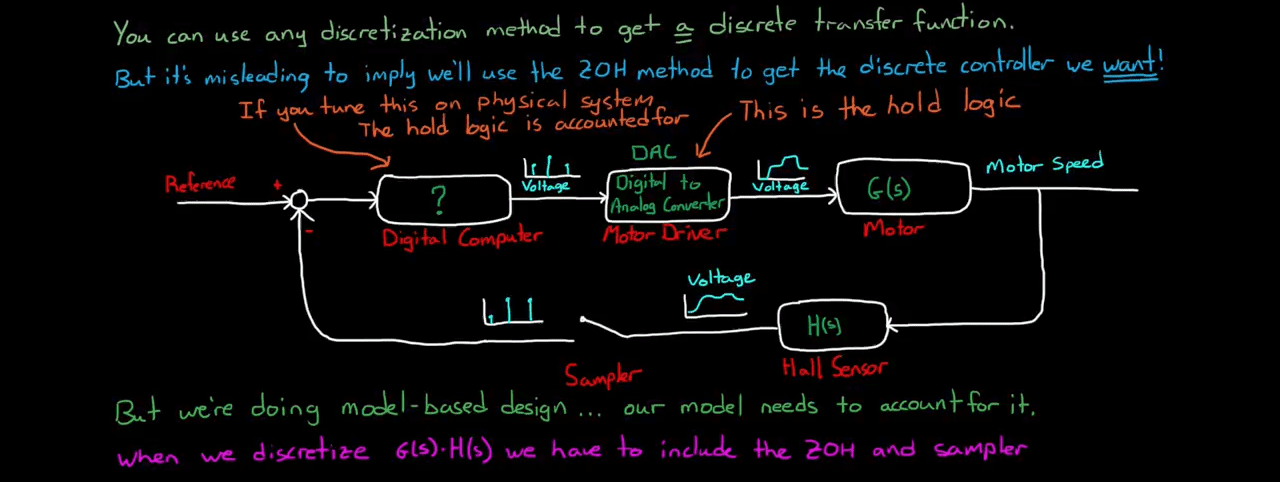 You can use any discretization method to get a discrete transfer function.
But it's misleading to imply we'll use the ZOH method to get the discrete controller we want!
If you tune this on physical system
The hold logic is accounted for
This is the hold logic
Reference
+
-
?
Digital Computer
Voltage
DAC
Digital to
Analog Converter
Motor Driver
Voltage
G(s)
Motor
Motor Speed
Voltage
H(s)
Hall Sensor
Sampler
But we're doing model-based design... our model needs to account for it.
When we discretize G(s)·H(s) we have to include the ZOH and sampler